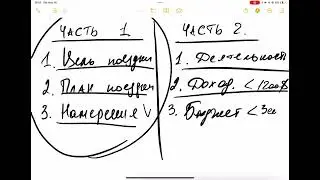 ЧАСТЬ 1
1. Цель поездки
2. План поездки
3. Намерения V
ЧАСТЬ 2.
1. Деятельность
2. Доход. < 1200$
3. Бюджет <